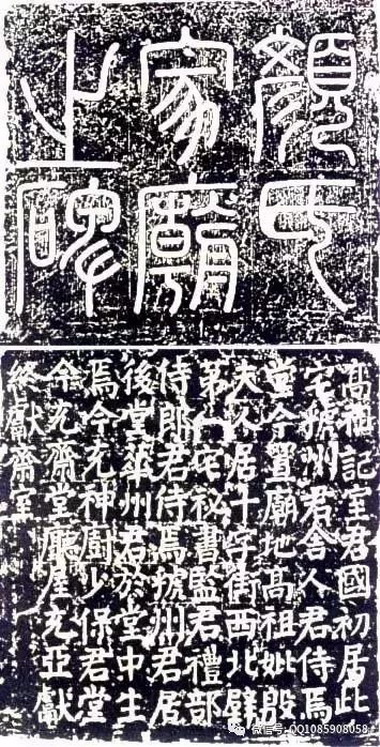 顏氏
家廟
之碑
高祖記室君國初居此
宅虢州君舍人君侍焉
堂今置廟地高祖妣殷
夫人居十字街西北壁
第一宅祕書監君禮部
侍郎君侍焉虢州君居
後堂華州君於堂中生
焉今充神廚少保君堂
今充齋堂廳屋充亞獻
終獻齋室
微信号: QQ1085908058